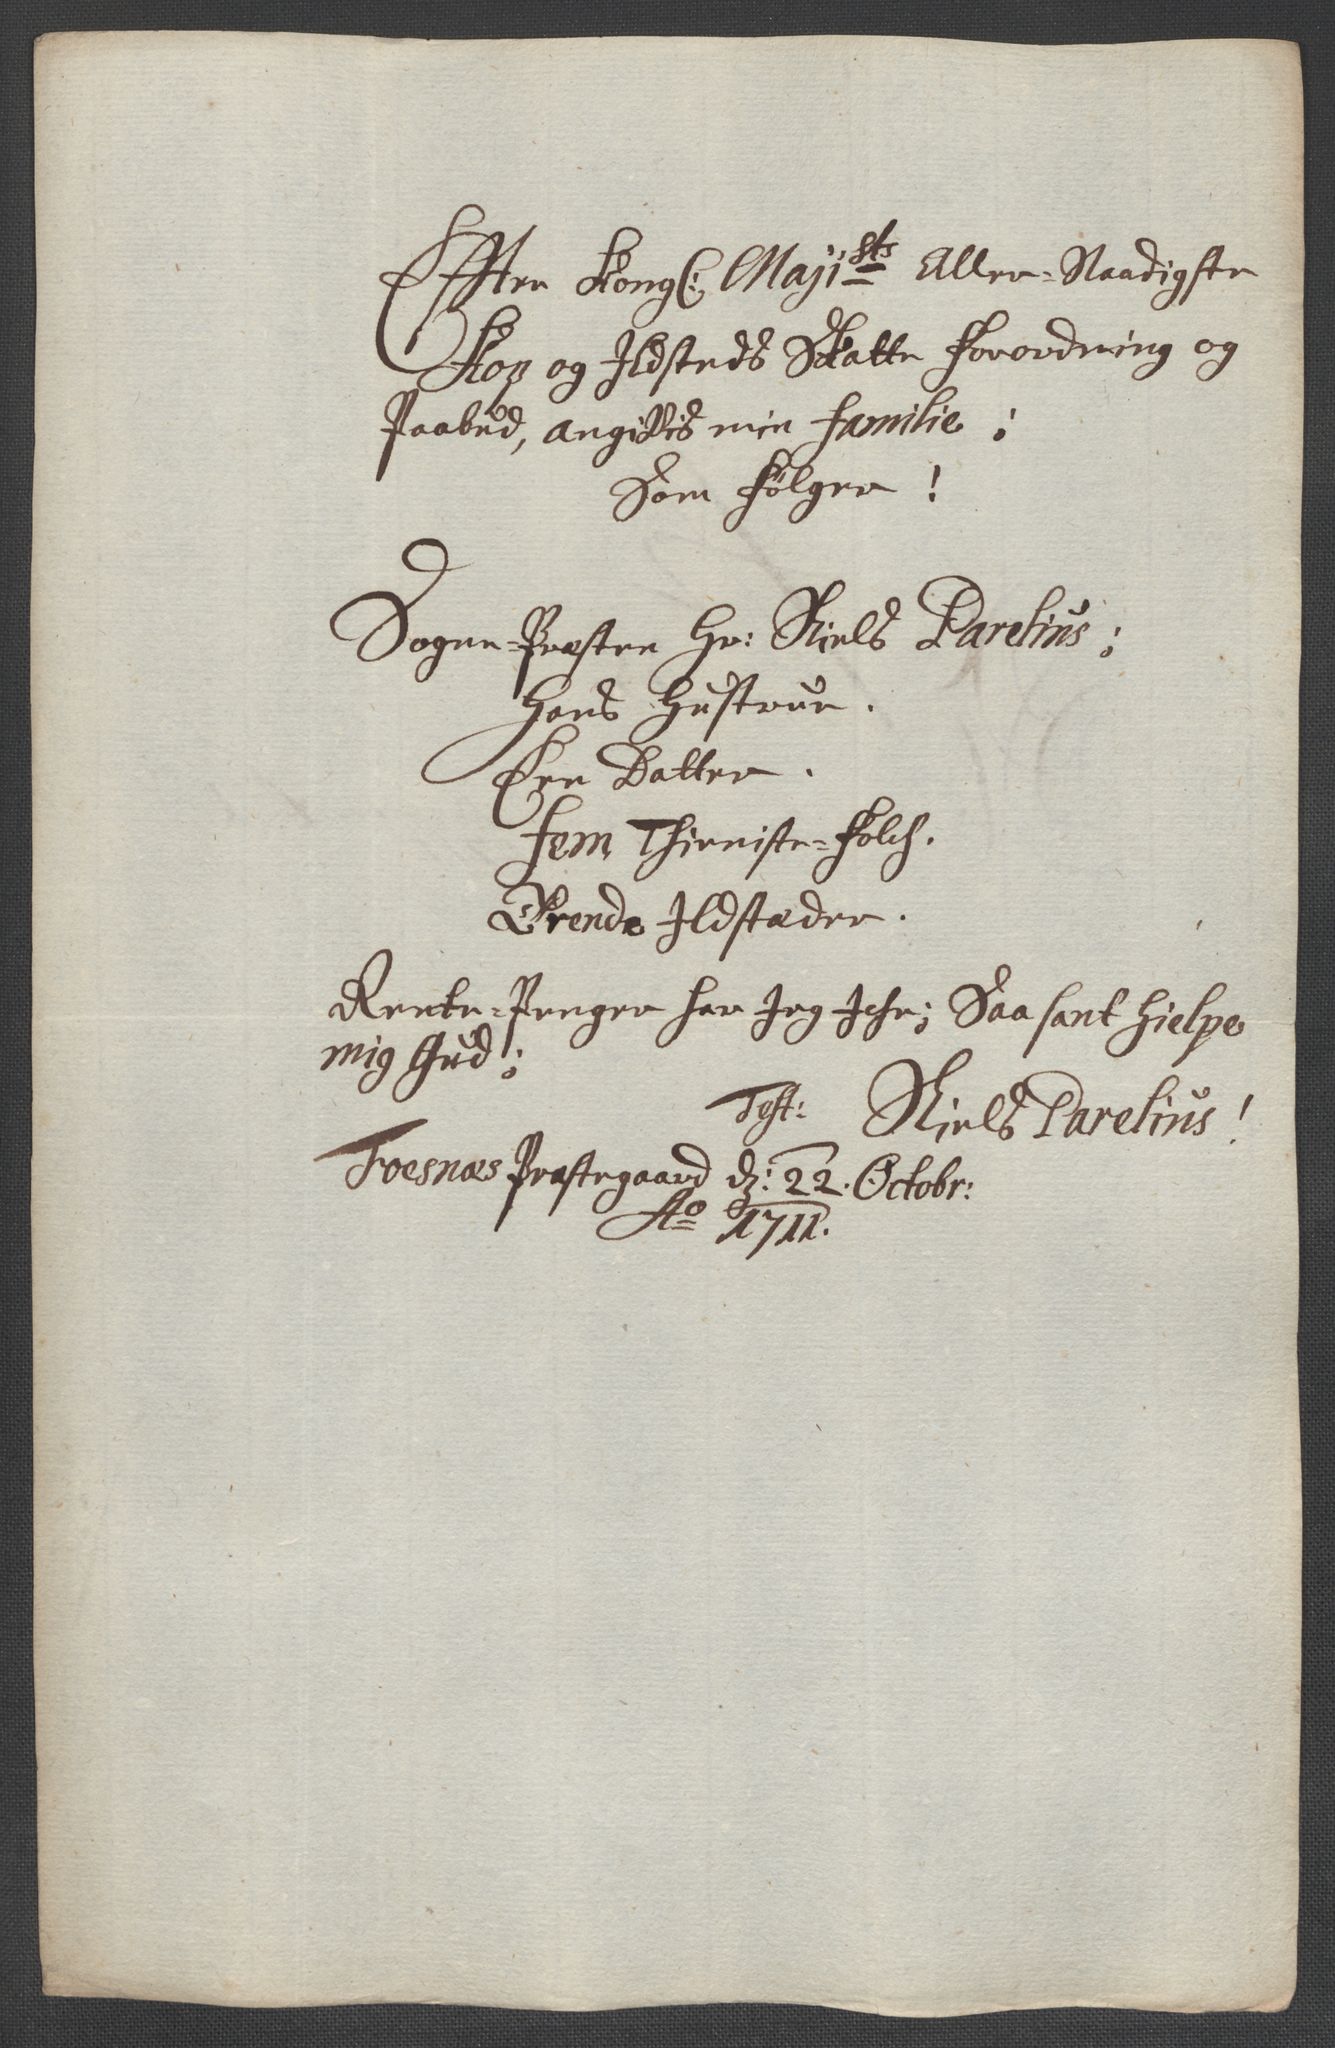 Effter Kongl: Maji^sts Aller-Naadigste
Kop og Ildsteds Skatte Forordning og
Paabud, angifvis min familie;
Som Følger!
Sogne-Præsten Hr: Niels Parelius;
Hans Hustrue.
Een Datter.
fem Thieniste-Folch.
Trende Ildstæder.
Rente-Penger har Jeg Iche; Saa sant hielpe
mig Gud;
Test: Niels Parelius!
Foesnæs Præstegaard d: 22. Octobr:
Ao 1711.